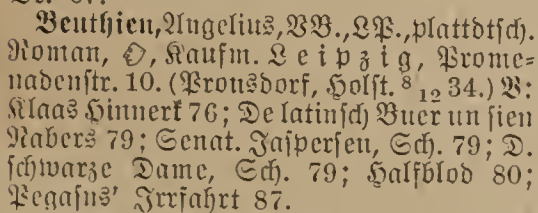 Beuthien, Angelius, VB., LP., plattdtsch.
Roman, Kaufm. Leipzig, Prome-
nadenstr. 10. (Pronsdorf, Holst. 8 12 34.) V:
Klaas Hinnerk 76; De latinsch Buer un sien
Nabers 79; Senat. Jaspersen, Sch. 79; D.
schwarze Dame, Sch. 79; Halfblod 80;
Pegasus' Irrfahrt 87.